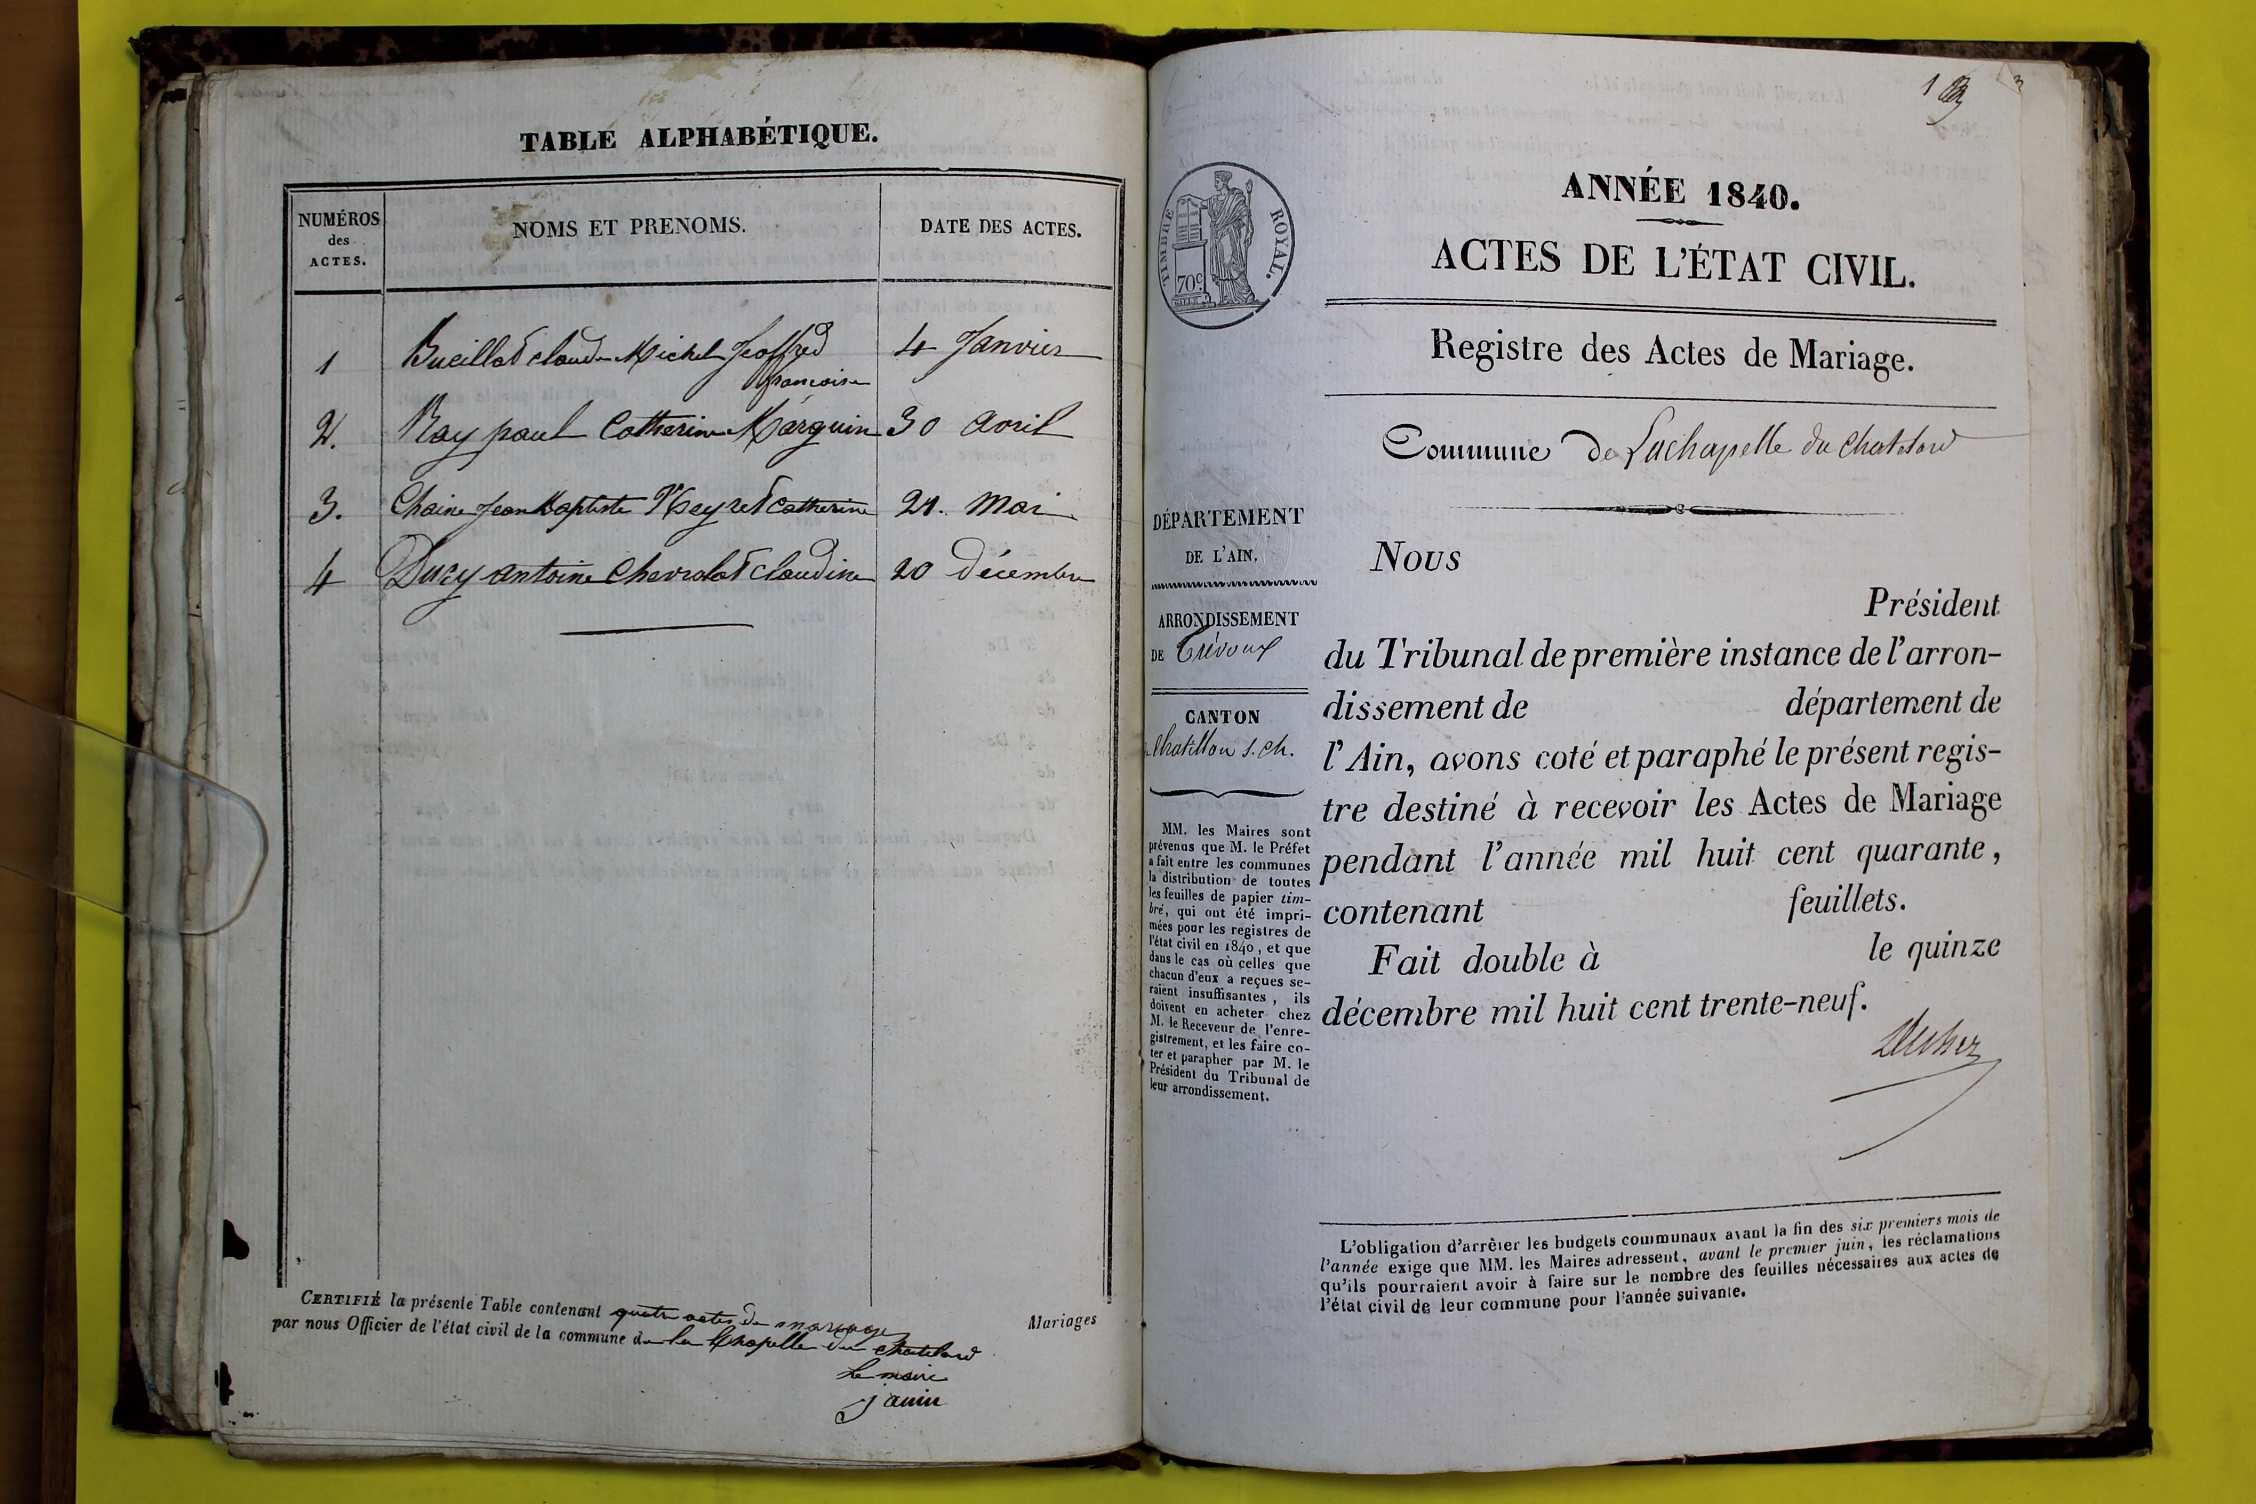 TABLE ALPHABÉTIQUE.
NUMÉROS
des
ACTES.
NOMS ET PRENOMS.
DATE DES ACTES.
1 claude Michel Jeoffred 4 Janvier
francoise
2. Ray paul Catherine Marguin 30 avril
3. Chaine Jean Baptiste Catherine mai
4 Ducy antoine Chevrolat claudine 20 décembre
CERTIFIÉ la présente Table contenant quatre actes de mariage
par nous Officier de l'état civil de la commune de la Chapelle du Chatelard
Mariages
Le maire
janin
1
3
TIMBRE ROYAL.
70c.
ANNÉE 1840.
ACTES DE L'ÉTAT CIVIL.
Registre des Actes de Mariage.
Commune De Lachapelle du Chatelard
DÉPARTEMENT
DE L'AIN.
ARRONDISSEMENT
DE Trévoux
CANTON
Chatillon s. Ch.
MM. les Maires sont
prévenus que M. le Préfet
a fait entre les communes
la distribution de toutes
les feuilles de papier tim-
bré, qui ont été impri-
mées pour les registres de
l'état civil en 1840, et que
dans le cas où celles que
chacun d'eux a reçues se-
raient insuffisantes, ils
doivent en acheter chez
M. le Receveur de l'enre-
gistrement, et les faire co-
ter et parapher par M. le
Président du Tribunal de
leur arrondissement.
Nous
Président
du Tribunal de première instance de l'arron-
dissement de département de
l'Ain, avons coté et paraphé le présent regis-
tre destiné à recevoir les Actes de Mariage
pendant l'année mil huit cent quarante,
contenant feuillets.
Fait double à le quinze
décembre mil huit cent trente-neuf.
L'obligation d'arrêter les budgets communaux avant la fin des six premiers mois de
l'année exige que MM. les Maires adressent, avant le premier juin, les réclamations
qu'ils pourraient avoir à faire sur le nombre des feuilles nécessaires aux actes de
l'état civil de leur commune pour l'année suivante.